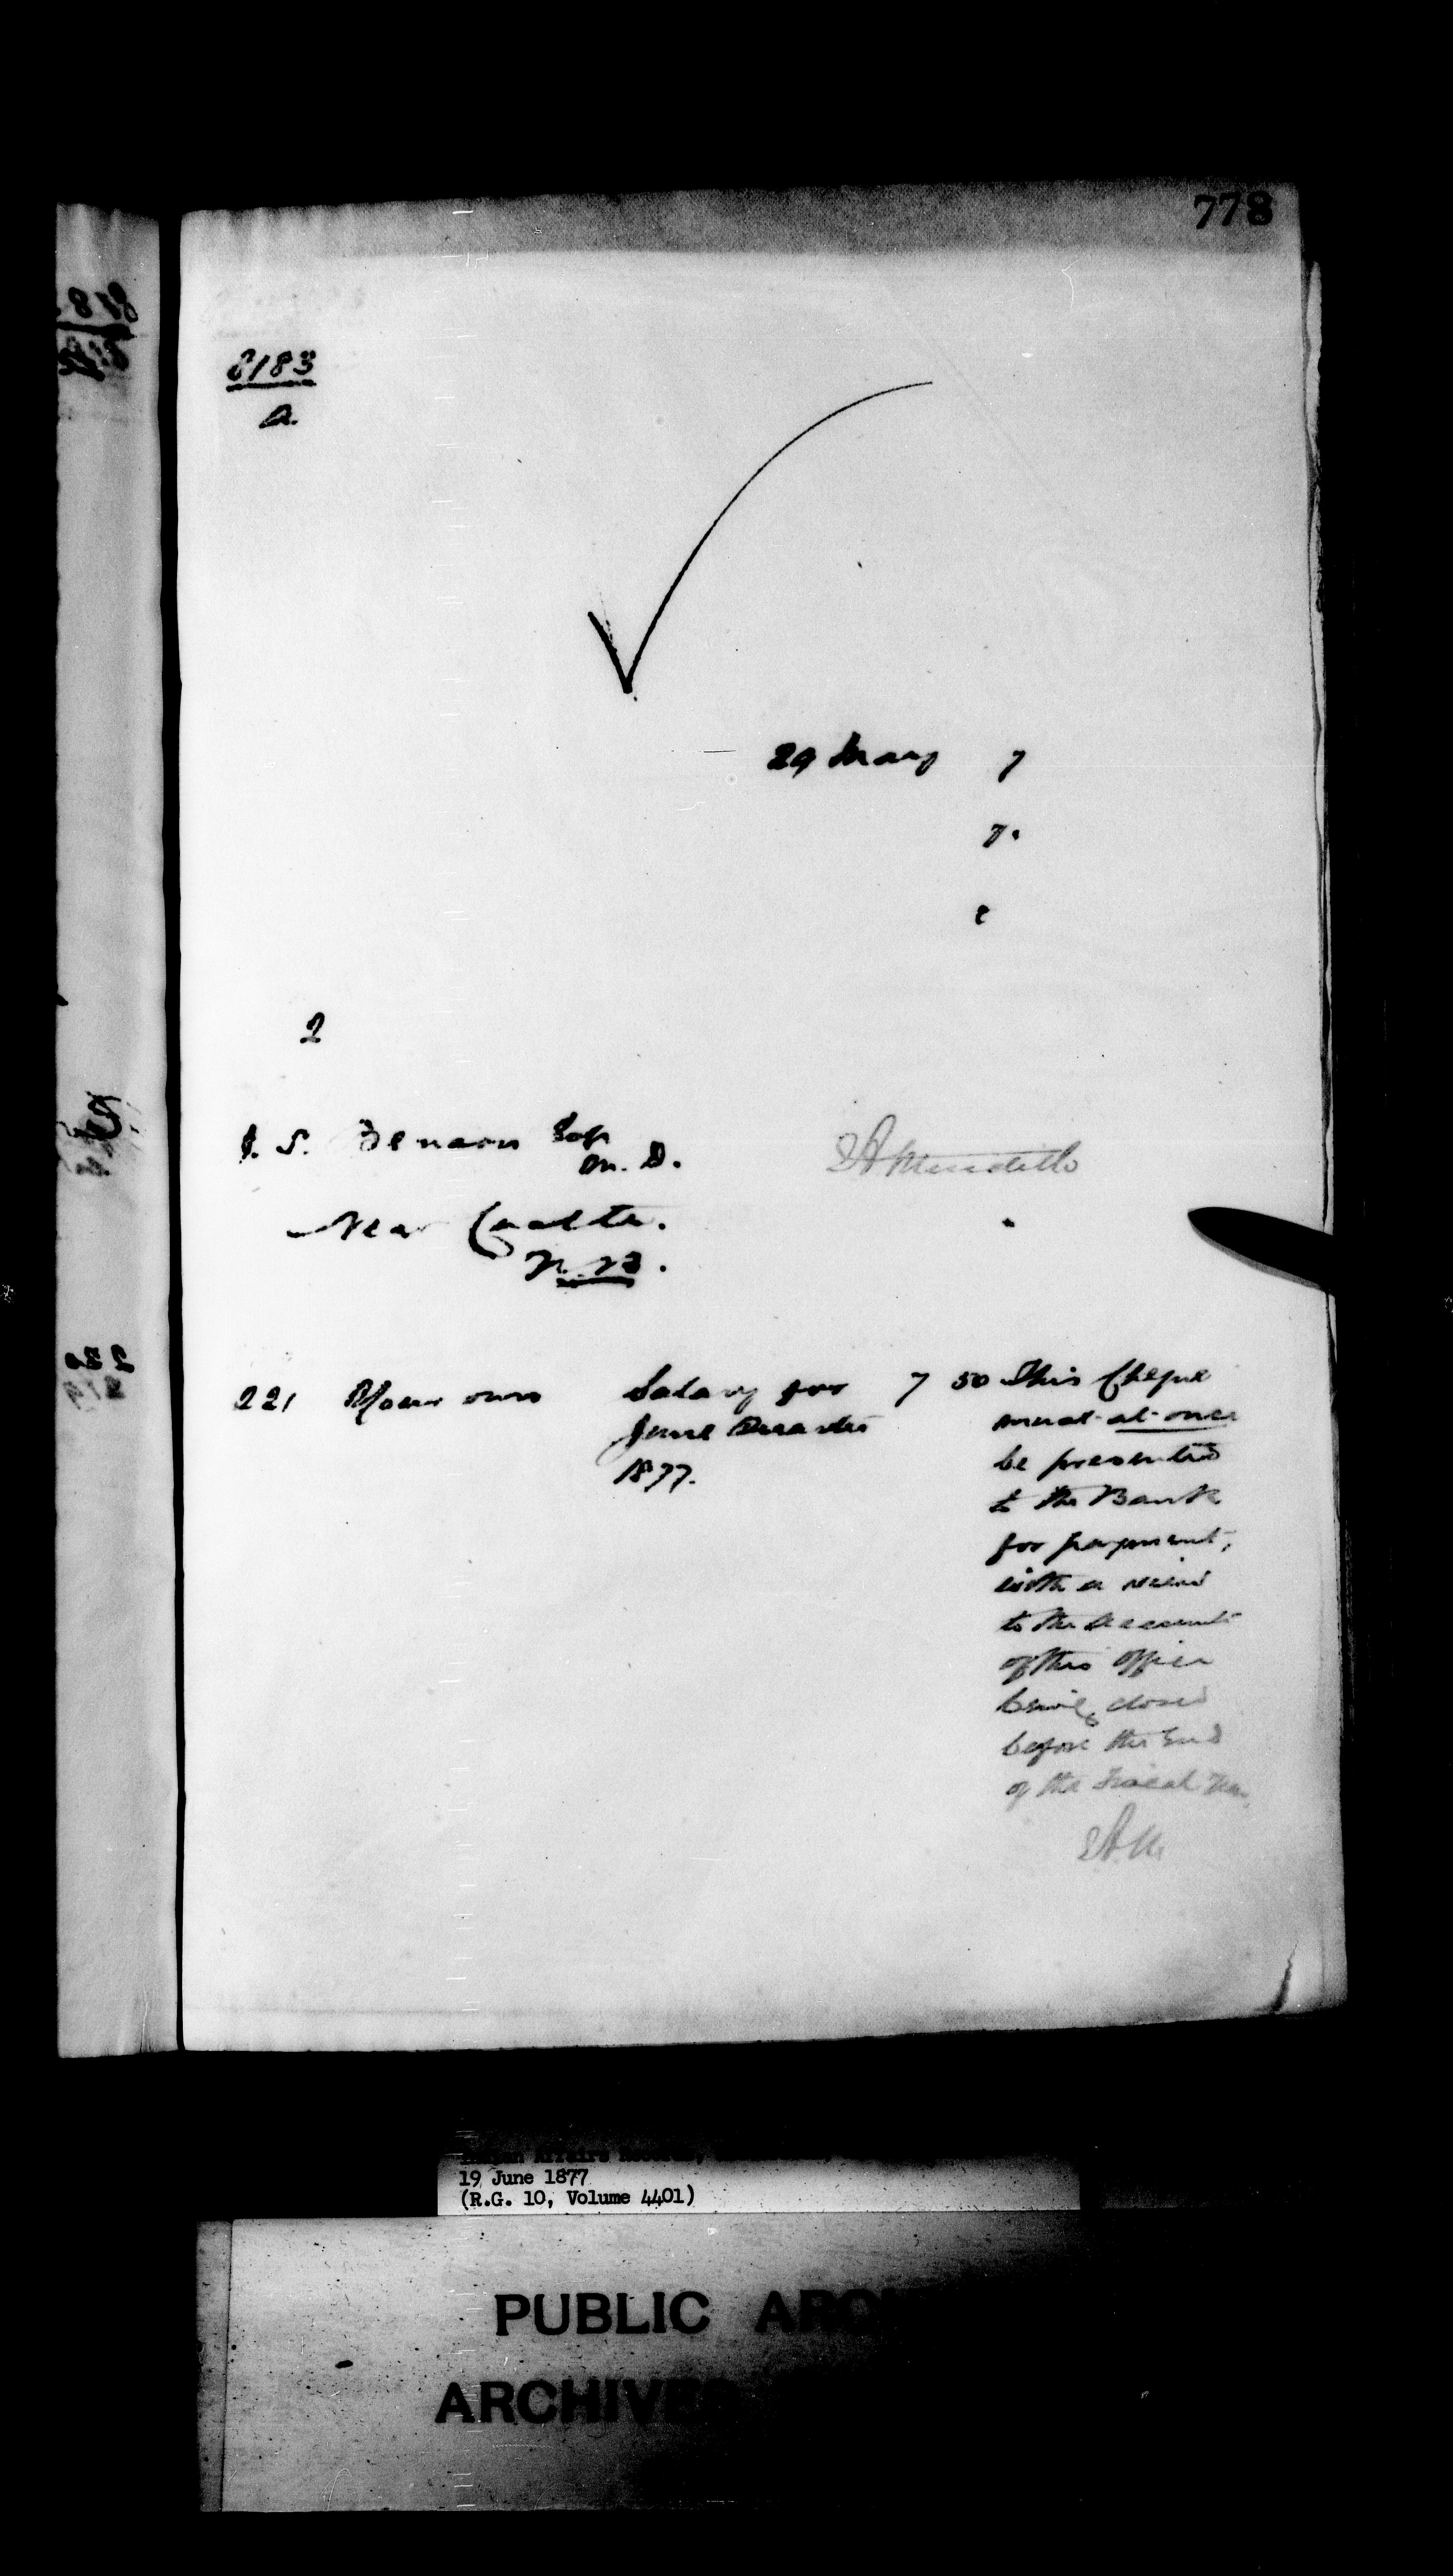 778
8183
a.
29 May 7
7.
e
2
J. S. Benson Esqr
M. D.
Near Castle.
N. B.
221 Your own Salary for 7 50 This Cheque
June Quarter must at once
1877. be presented
to the Bank
for payment,
with a view
to the accounts
of this office
being closed
before the End
of the Fiscal Year.
EAM
EA Meredith
19 June 1877
(R.G. 10, Volume 4401)
PUBLIC
ARCHIVES